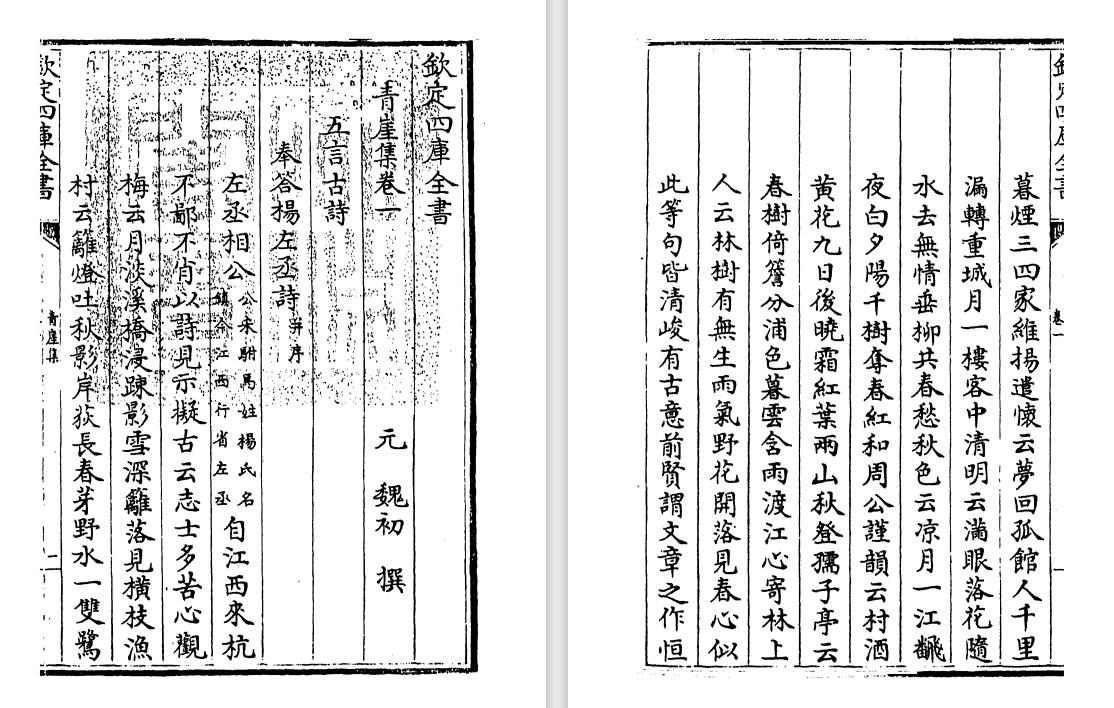 欽定四庫全書
青崖集卷一 元 魏初 撰
五言古詩
奉答揚左丞詩并序
左丞相公公宋駙馬姓揚氏名鎮今江西行省左丞自江西來杭
不鄙不肖以詩見示擬古云志士多苦心觀
梅云月淡溪橋浸踈影雪深籬落見橫枝漁
村云籬燈吐秋影岸荻長春芽野水一雙鷺
欽定四庫全書 青崖集
欽定四庫全書 卷一
暮煙三四家維揚遣懷云夢回孤館人千里
漏轉重城月一樓客中清明云滿眼落花隨
水去無情垂柳共春愁秋色云凉月一江飜
夜白夕陽千樹奪春紅和周公謹韻云村酒
黄花九日後曉霜紅葉兩山秋登孺子亭云
春樹倚簷分浦色暮雲含雨渡江心寄林上
人云林樹有無生雨氣野花開落見春心似
此等句皆清峻有古意前賢謂文章之作恒